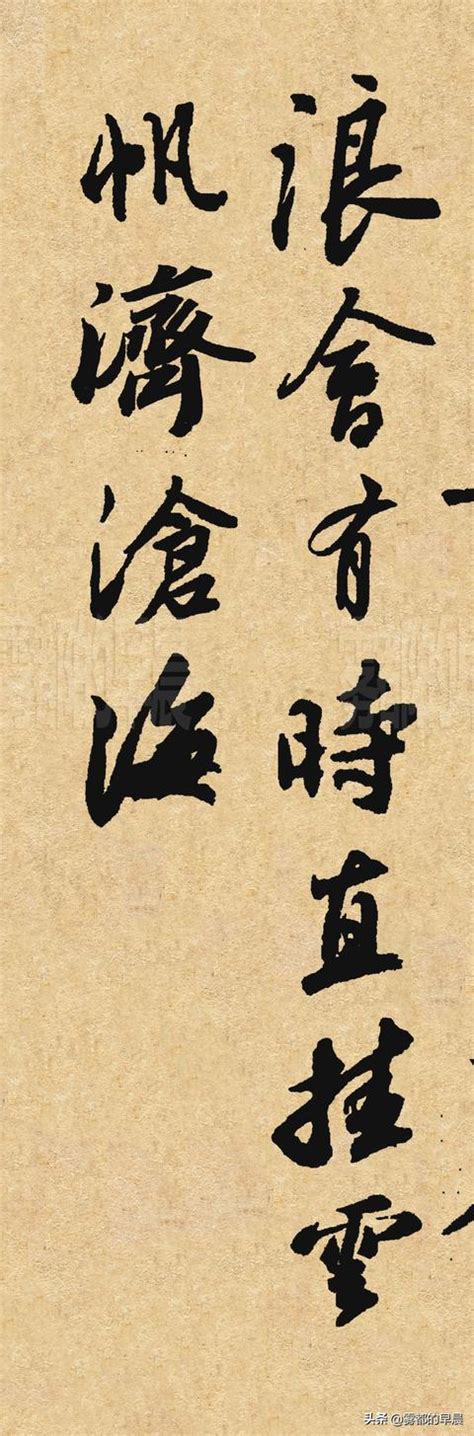 浪會有時直挂雲
帆濟滄海
头条 @雾都的早晨